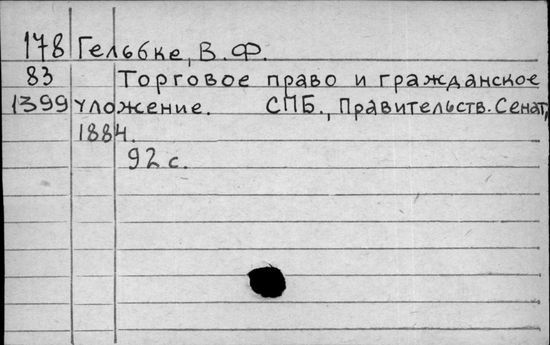 178 Гельбке, В. Ф.
83 Торговое право и гражданское
1399 уложение. СПБ., Правительств. Сенат,
1884.
92 с.